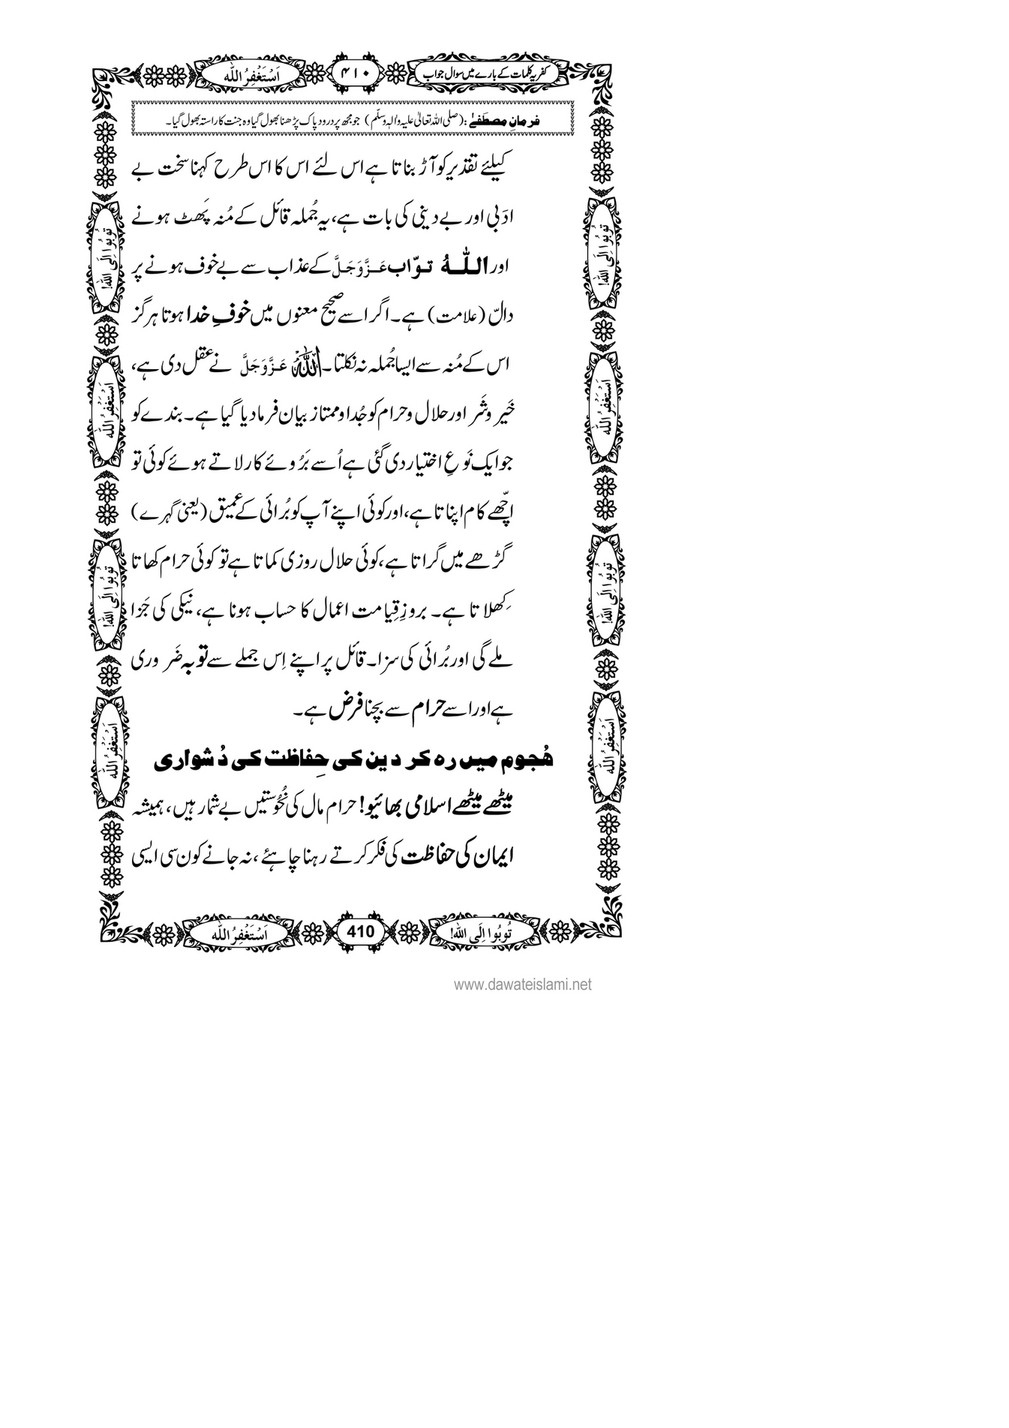 کفریہ کلمات کے بارے میں سوال جواب
۴۱۰
اَسْتَغْفِرُ اللّٰہ
فرمانِ مصطَفٰے : (صلی اللہ تعالیٰ علیہ والہٖ وسلّم) جو مجھ پر درود پاک پڑھنا بھول گیا وہ جنت کا راستہ بھول گیا۔
کیلئے تقدیر کو آڑ بناتا ہے اس لئے اس کا اس طرح کہنا سخت بے
ادَبی اور بے دینی کی بات ہے، یہ جُملہ قائل کے مُنہ پَھٹ ہونے
اور اللّٰہُ توّاب عَزَّوَجَلَّ کے عذاب سے بے خوف ہونے پر
دالّ (علامت) ہے۔ اگر اسے صحیح معنوں میں خوفِ خدا ہوتا ہرگز
اس کے مُنہ سے ایسا جُملہ نہ نکلتا۔ اللّٰہ عَزَّوَجَلَّ نے عقل دی ہے،
خَیر و شَر اور حلال و حرام کو جُدا و ممتاز بیان فرما دیا گیا ہے۔ بندے کو
جو ایک نَوعِ اختیار دی گئی ہے اُسے بَرُوئے کار لاتے ہوئے کوئی تو
اچّھے کام اپناتا ہے، اور کوئی اپنے آپ کو بُرائی کے عمیق (یعنی گہرے)
گڑھے میں گراتا ہے، کوئی حلال روزی کماتا ہے تو کوئی حرام کھاتا
کِھلاتا ہے۔ بروزِ قِیامت اعمال کا حساب ہونا ہے، نیکی کی جَزا
ملے گی اور بُرائی کی سزا۔ قائل پر اپنے اِس جملے سے توبہ ضَروری
ہے اور اسے حرام سے بچنا فرض ہے۔
ھُجوم میں رہ کر دین کی حِفاظت کی دُشواری
میٹھے میٹھے اسلامی بھائیو! حرام مال کی نُحُوستیں بے شمار ہیں، ہمیشہ
ایمان کی حفاظت کی فکر کرتے رہنا چاہئے، نہ جانے کون سی ایسی
تُوبُوا اِلَی اللہ!
اَسْتَغْفِرُ اللّٰہ
تُوبُوا اِلَی اللہ!
اَسْتَغْفِرُ اللّٰہ
تُوبُوا اِلَی اللہ!
اَسْتَغْفِرُ اللّٰہ
تُوبُوا اِلَی اللہ!
اَسْتَغْفِرُ اللّٰہ
تُوبُوا اِلَی اللہ!
410
اَسْتَغْفِرُ اللّٰہ
www.dawateislami.net